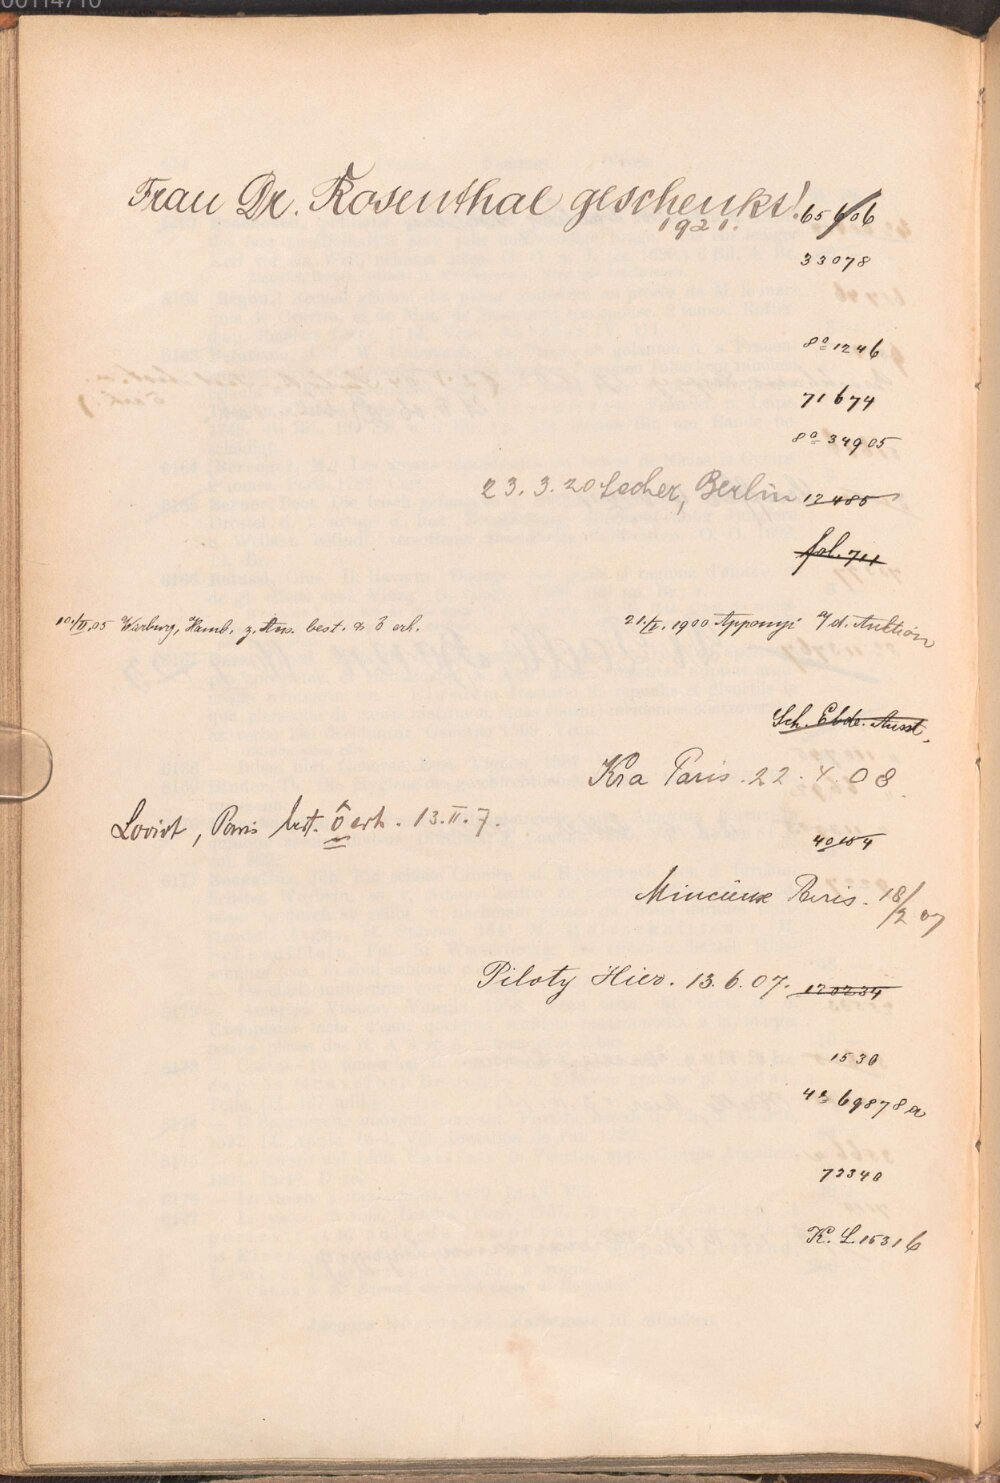 00114710
Frau Dr. Rosenthal geschenkt! 65606
1921.
33078
8º 1246
71674
8º 34905
23.3.20 Lecher, Berlin 12485
fol. 711
10./II.05 Warburg, Hamb. z. Ans. best. & ô erh.
21./V. 1900 Apponyi a/d. Auktion
Sch. Ebde. Ausst.
Kra Paris. 22. 4. 08
Paris best. ô erh. 13.II.7.
40184
Mincieux Paris. 18/2 07
Piloty Hier. 13.6.07. 120234
1530
4º 69878a
73340
K. L. 15316